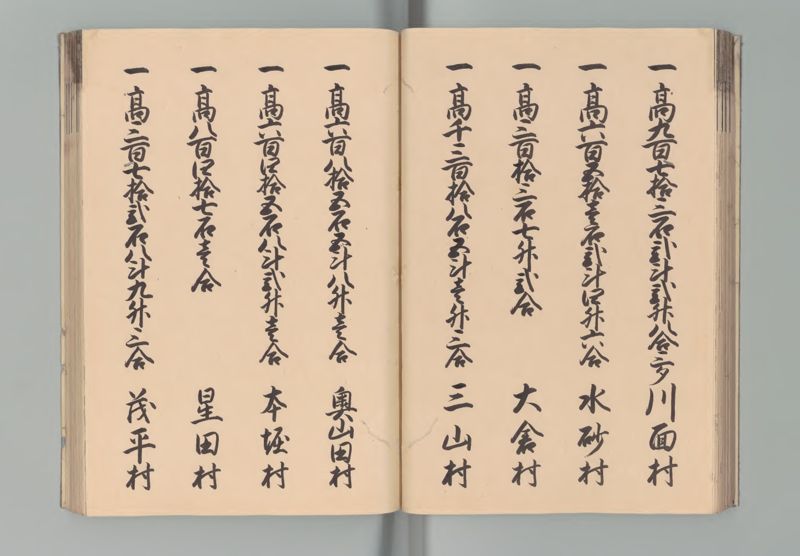 一高九百七拾三石弐斗弐升八合三夕 川面村
一高六百五拾壱石弐斗四升六合 水砂村
一高三百拾三石七升弐合 大倉村
一高千三百拾八石五斗壱升三合 三山村
一高六百八拾五石五斗八升壱合 奥山田村
一高六百四拾五石八斗弐升壱合 本堀村
一高八百四拾七石壱合 星田村
一高三百七拾弐石八斗九升三合 茂平村